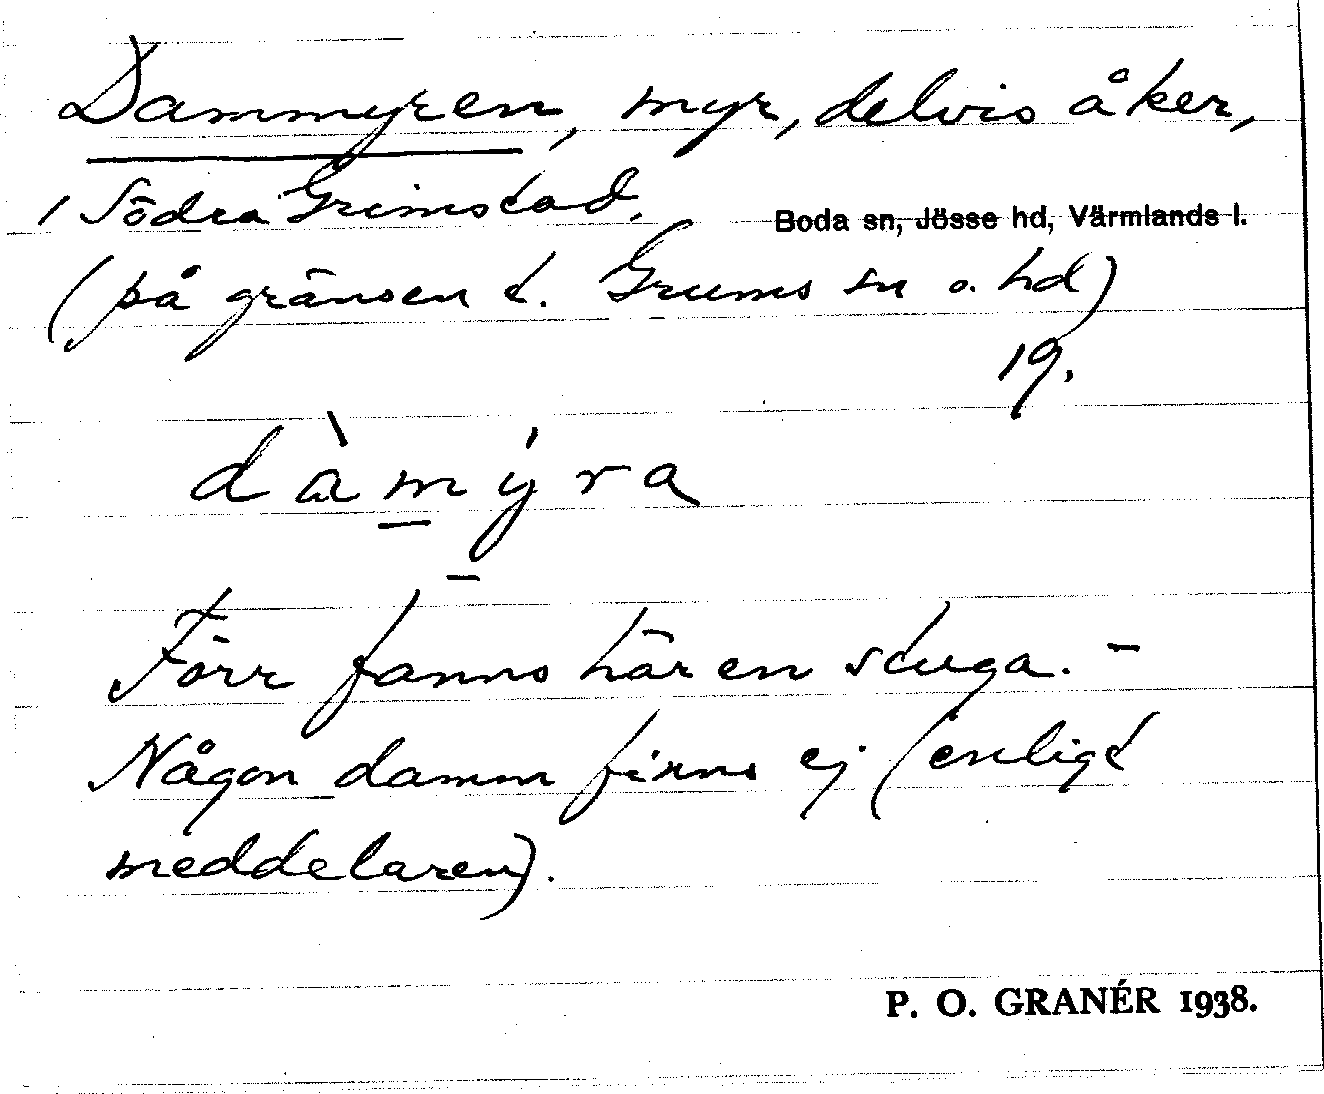 Dammyren, myr, delvis åker,
i Södra Grimstad. Boda sn, Jösse hd, Värmlands l.
(på gränsen t. Grums sn o. hd)
19.
dàmýra
Förr fanns här en stuga. –
Någon damm finns ej (enligt
meddelaren).
P. O. GRANÉR 1938.